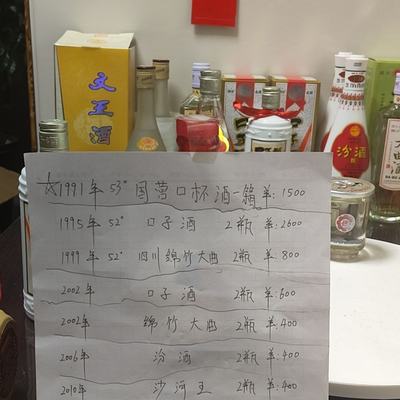 文王酒
汾酒
大曲酒
☆1991年 53° 国营口杯酒一箱 羊:1500
1995年 52° 口子酒 2瓶 羊:2600
1999年 52° 四川绵竹大曲 2瓶 羊:800
2002年 口子酒 2瓶 羊:600
2002年 绵竹大曲 2瓶 羊:400
2006年 汾酒 2瓶 羊:400
2010年 沙河王 2瓶 羊:400